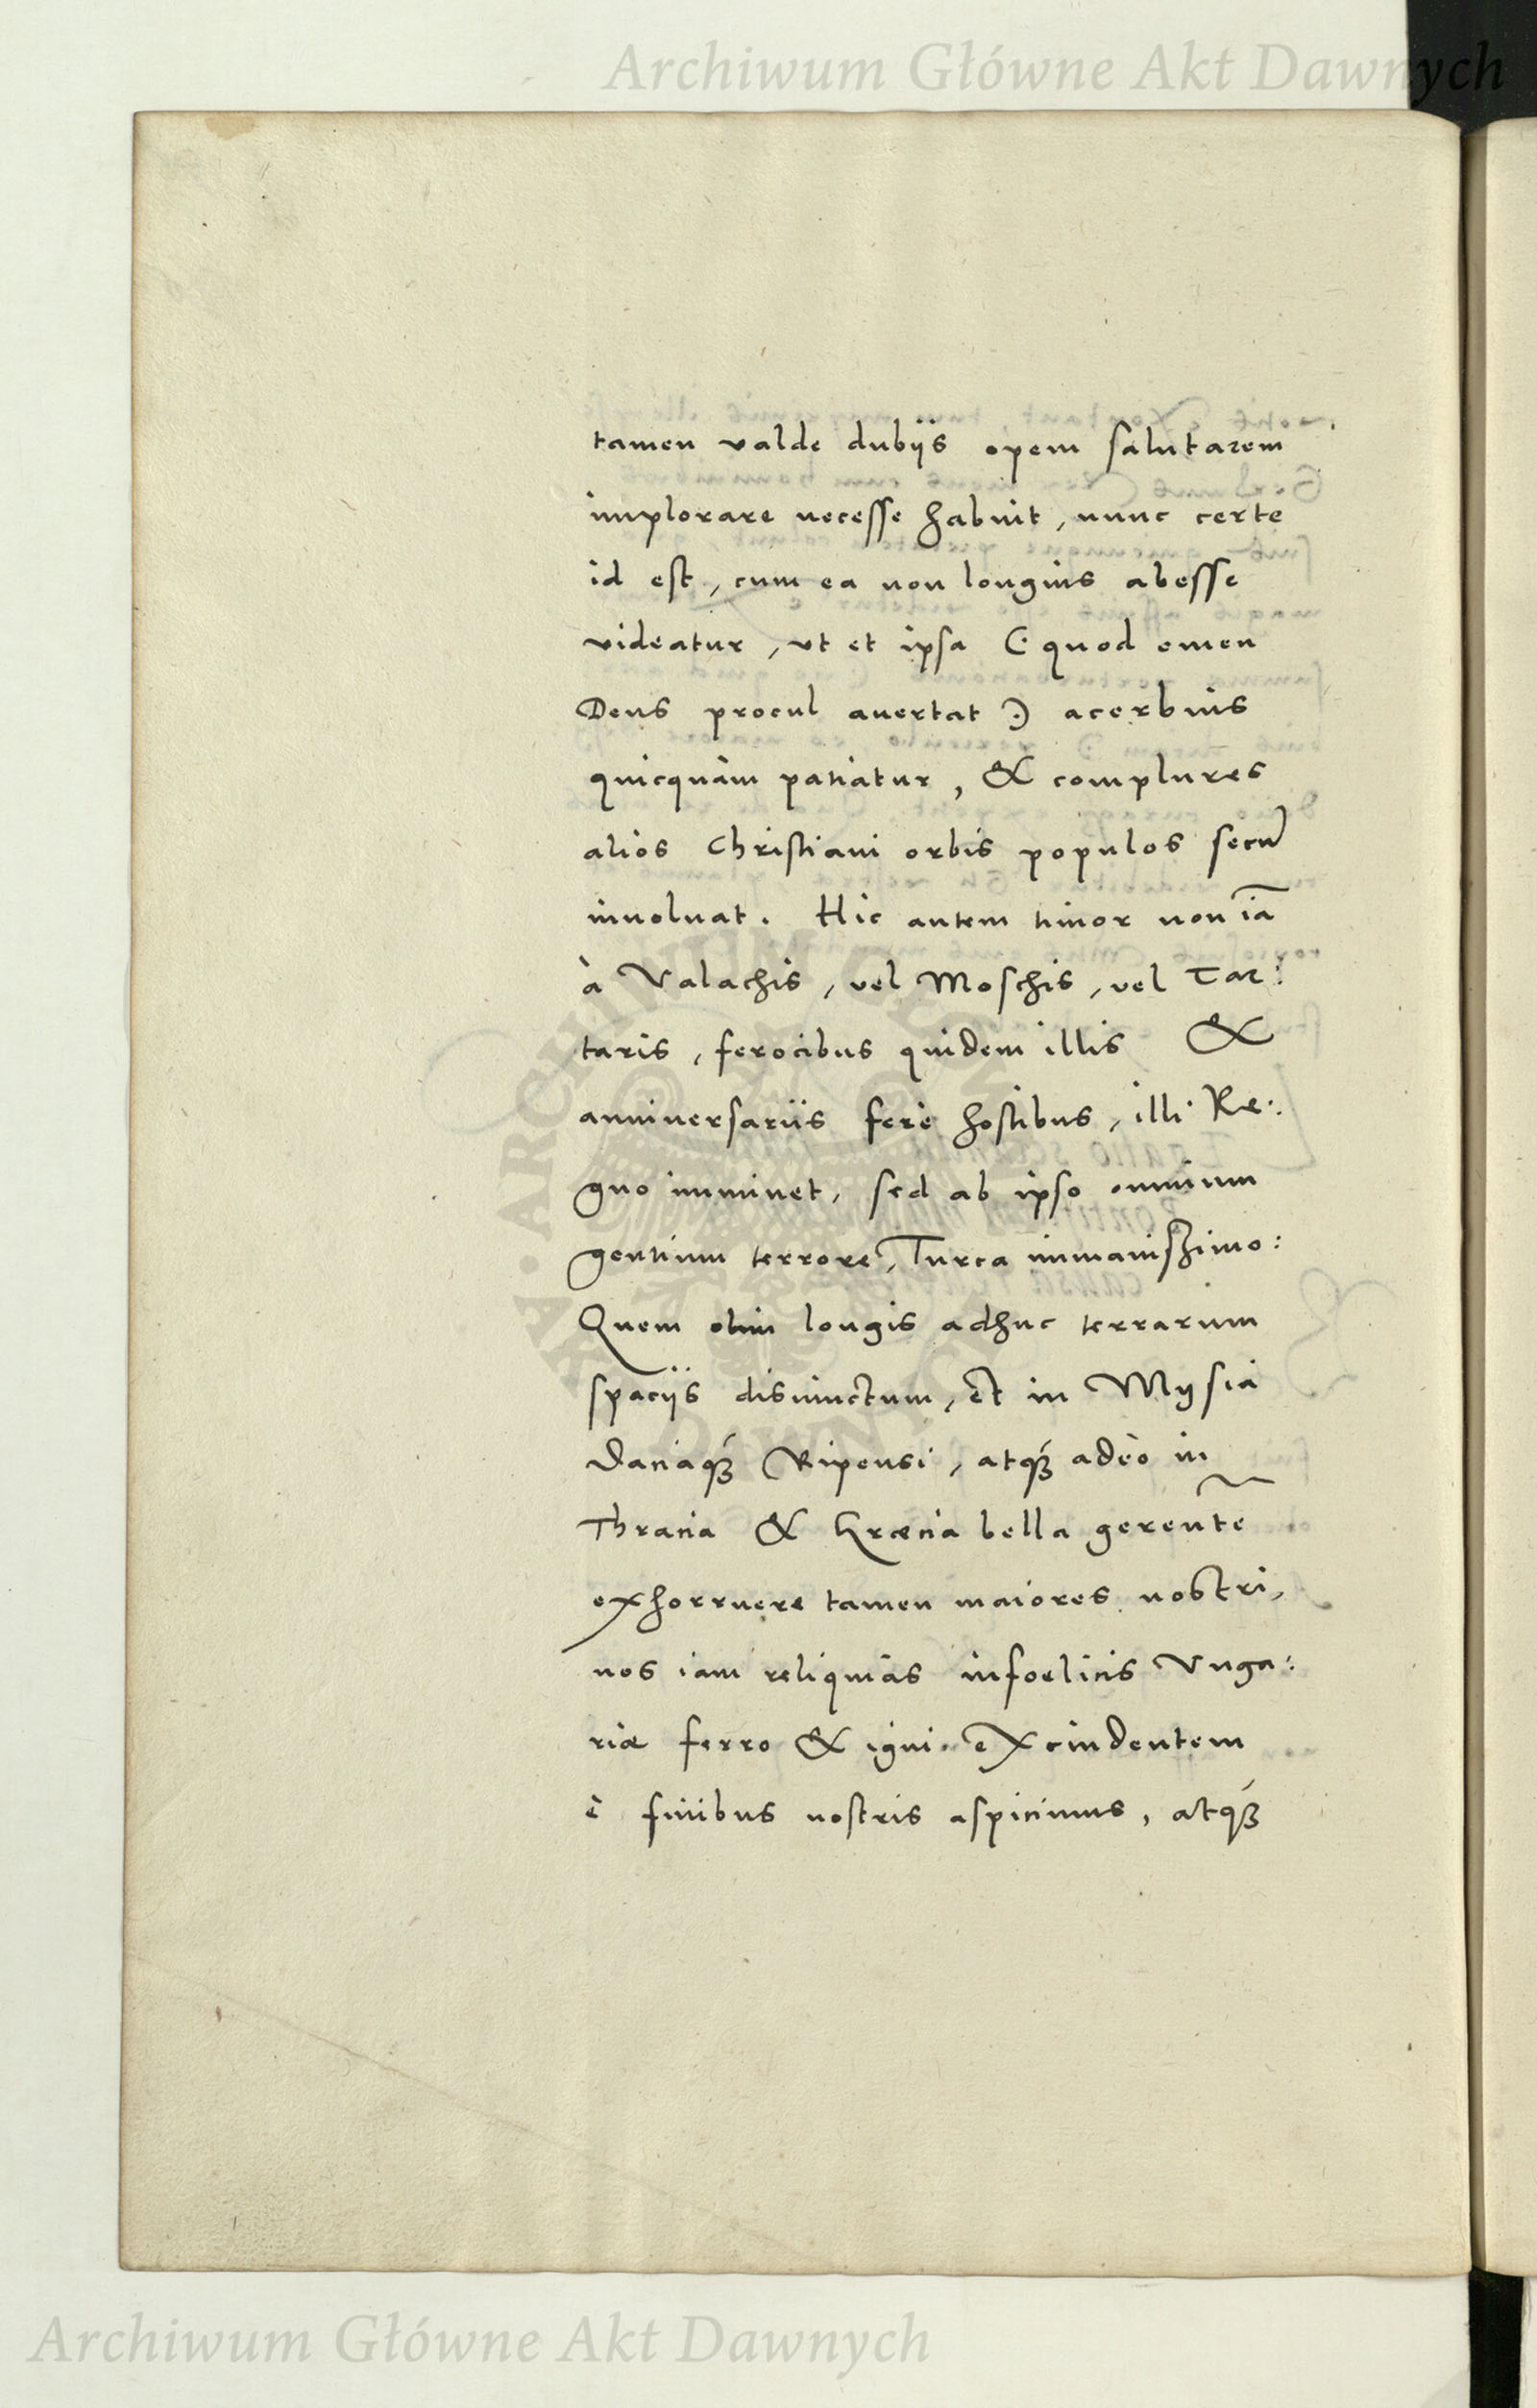 Archiwum Główne Akt Dawnych
tamen valde dubijs opem salutarem
implorare necesse habuit, nunc certe
id est, cum ea non longius abesse
videatur, ut et ipsa (: quod omen
Deus procul auertat :) acerbius
quicquàm patiatur, & complures
alios Christiani orbis populos secũ
inuoluat. Hic autem timor non iã
à Valachis, vel Moschis, vel Tar:
taris, ferocibus quidem illis &
anniuersarijs ferè hostibus, illi Re:
gno imminet, sed ab ipso omnium
gentium terrore, Turca immanissimo:
Quem olim longis adhuc terrarum
spacijs disiunctum, et in Mysia
Daciaqꝫ Ripensi, atqꝫ adeò in
Thracia & Græcia bella gerentẽ
exhorruere tamen maiores nostri,
nos iam reliquias infoelicis Vnga:
riæ ferro & igni excindentem
è finibus nostris aspicimus, atqꝫ
Archiwum Główne Akt Dawnych